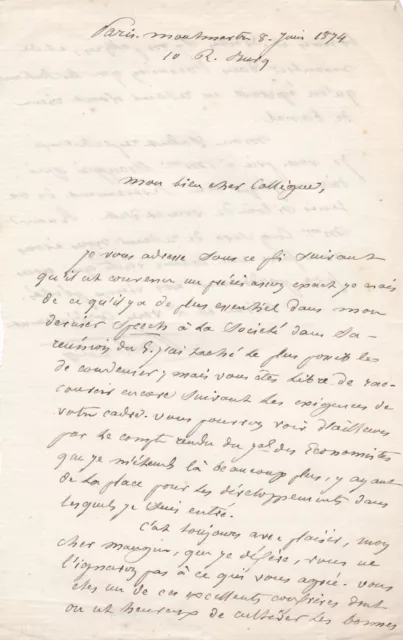 Paris. Montmartre 8. Juin 1874
10 R. Burq
Mon bien cher Collègue,
Je vous adresse sous ce pli suivant
qu'il est convenu un précis assez exact je crois
de ce qu'il y a de plus essentiel dans mon
dernier Speech à la Société dans sa
réunion du 5. j'ai taché le plus possible
de condenser; mais vous êtes libre de rac-
courcir encore suivant les exigences de
votre cadre. vous pourrez voir d'ailleurs
par le compte rendu du Jal des Economistes
que je m'étends là beaucoup plus, y ayant
de la place pour les développements dans
lesquels je suis entré.
C'est toujours avec plaisir, mon
cher Mangin, que je défère, vous ne
l'ignorez pas à ce qui vous agrée. vous
êtes un de ces excellents confrères dont
on est heureux de cultiver les bonnes